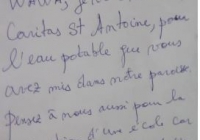 Caritas St Antoine, pour
l'eau potable que vous
avez mis dans notre paroisse
Pensez à nous aussi pour la
d'une école car